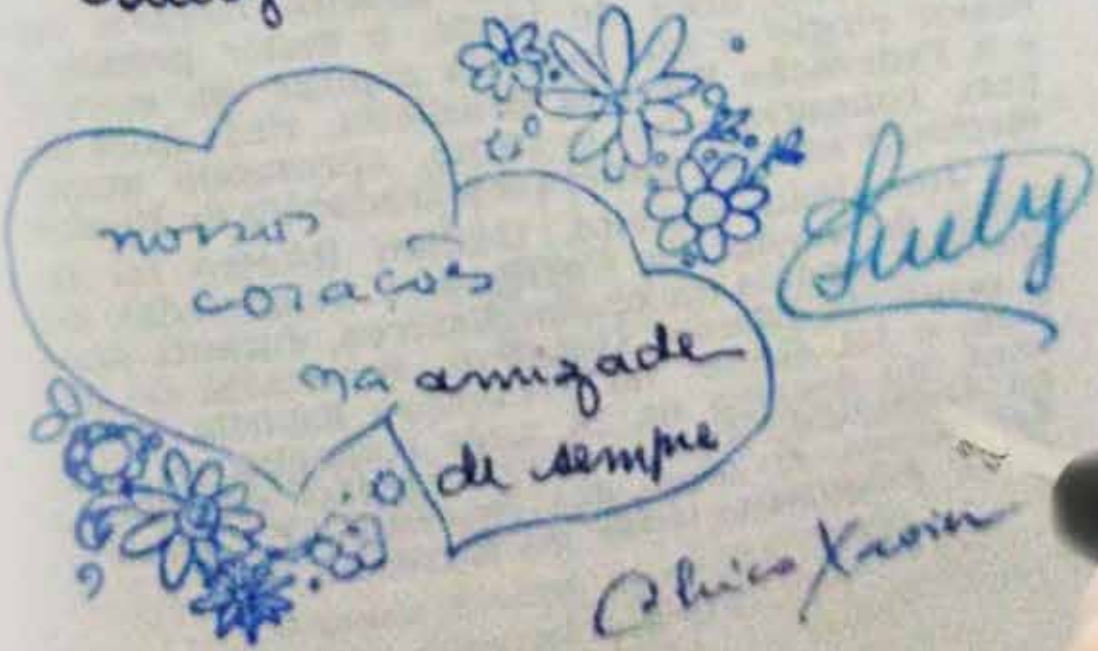 nossos
corações
na amizade
de sempre
Suely
Chico Xavier